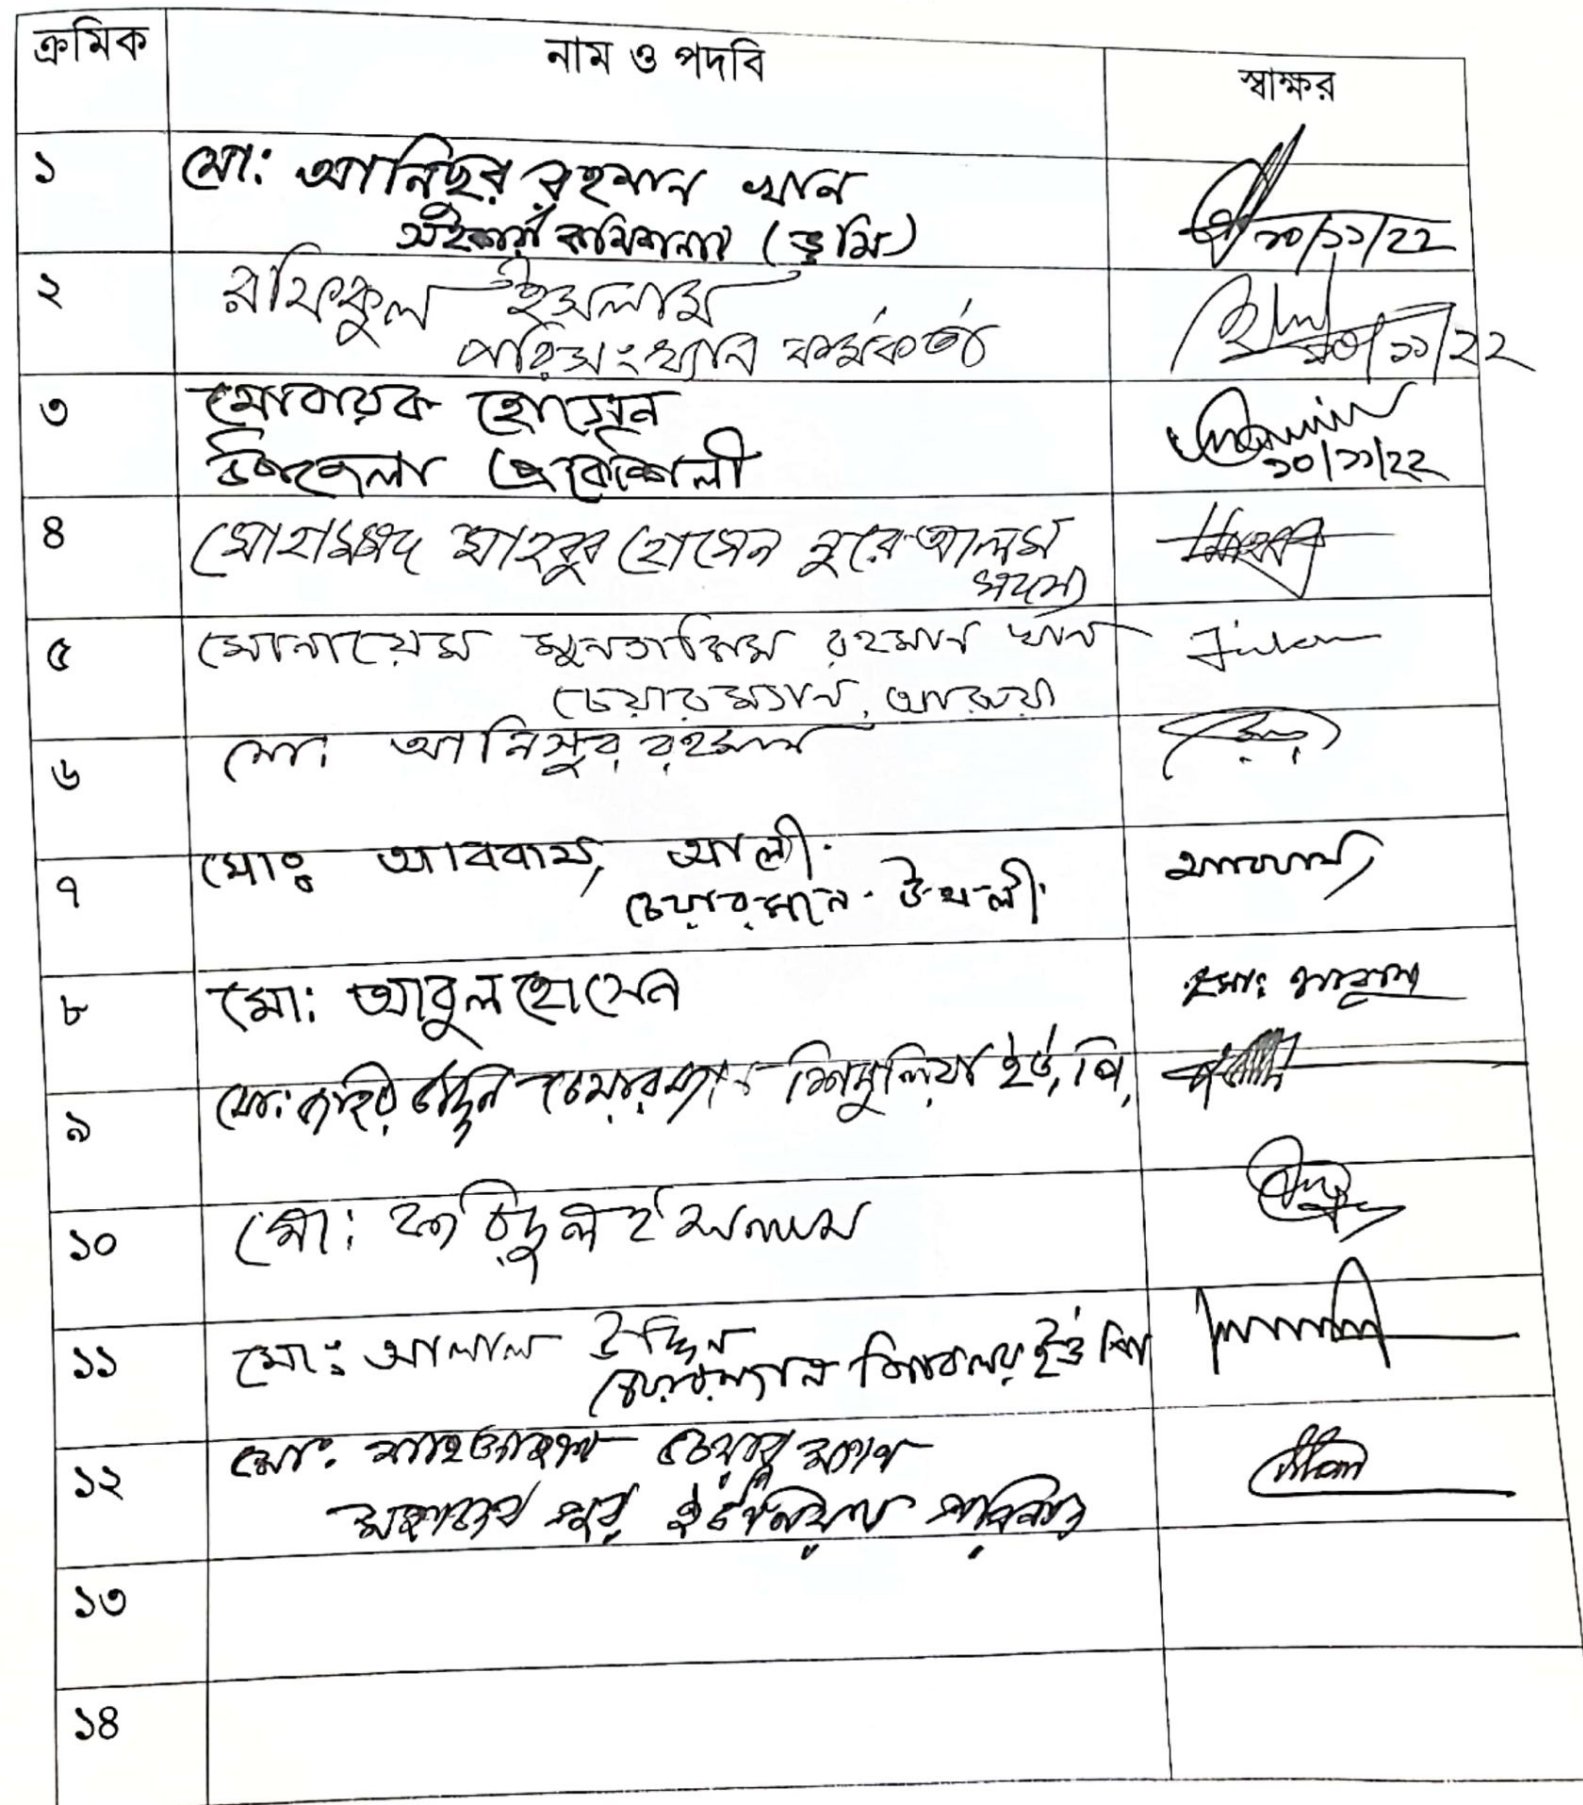 ক্রমিক নাম ও পদবি স্বাক্ষর
১ মো: আনিছুর রহমান খান
সহকারী কমিশনার (ভূমি) ১০/১১/২২
২ রফিকুল ইসলাম
পরিসংখ্যান কর্মকর্তা ১০/১১/২২
৩ মোবারক হোসেন
উপজেলা প্রকৌশলী ১০/১১/২২
৪ মোহাম্মদ মাহবুব হোসেন নুরে আলম
সদস্য
৫ মোনায়েম মুনতাকিম রহমান খান
চেয়ারম্যান, আরুয়া
৬ মো: আনিসুর রহমান
৭ মোঃ আব্বাস আলী
চেয়ারম্যান উথলী
৮ মো: আবুল হোসেন মো: আবুল
৯ মো: জহির উদ্দিন চেয়ারম্যান শিমুলিয়া ইউ, পি,
১০ মো: ফরিদুল ইসলাম
১১ মোঃ আলাল উদ্দিন
চেয়ারম্যান শিবালয় ইউ পি
১২ মো: চেয়ারম্যান
ইউনিয়ন পরিষদ
১৩
১৪